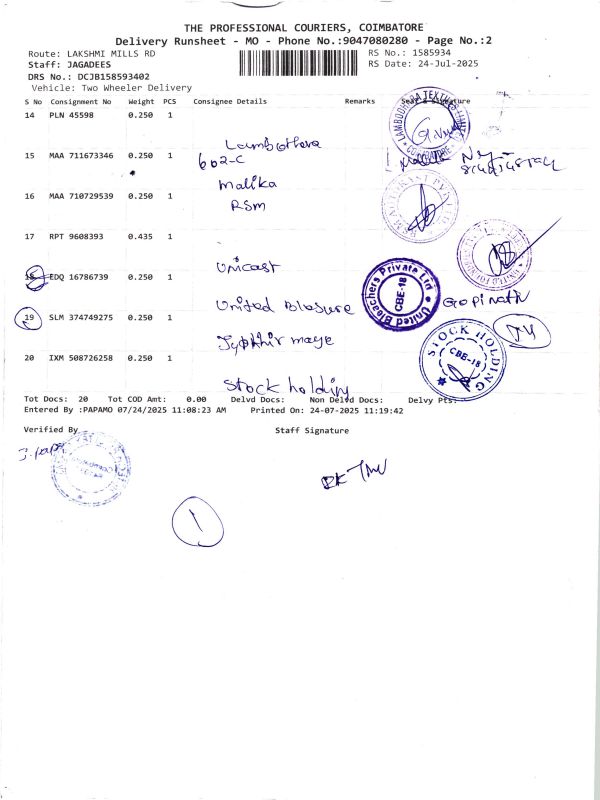 THE PROFESSIONAL COURIERS, COIMBATORE
Delivery Runsheet - MO - Phone No.:9047080280 - Page No.:2
Route: LAKSHMI MILLS RD
RS No.: 1585934
Staff: JAGADEES
RS Date: 24-Jul-2025
DRS No.: DCJB158593402
Vehicle: Two Wheeler Delivery
S No Consignment No Weight PCS Consignee Details Remarks Seal & Signature
14 PLN 45598 0.250 1
15 MAA 711673346 0.250 1
602-C
Malika
16 MAA 710729539 0.250 1
RSM
17 RPT 9608393 0.435 1
Unicast
18 EDQ 16786739 0.250 1
United Bleachers Private Ltd
CBE-18
Gopinath
United
19 SLM 374749275 0.250 1
STOCK HOLDING
CBE-18
20 IXM 508726258 0.250 1
Stock holding
Tot Docs: 20 Tot COD Amt: 0.00 Delvd Docs: Non Delvd Docs: Delvy Pts:
Entered By :PAPAMO 07/24/2025 11:08:23 AM Printed On: 24-07-2025 11:19:42
Verified By Staff Signature
1